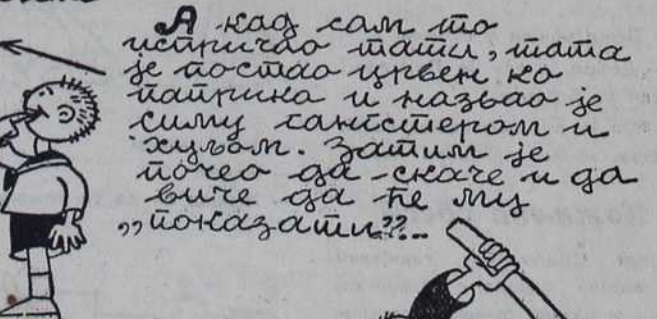 А кад сам то
испричао тати, тата
је постао црвен ко
паприка и назвао је
Симу гангстером и
хуљом. Затим је
почео да скаче и да
виче да ће му
„показати"??..